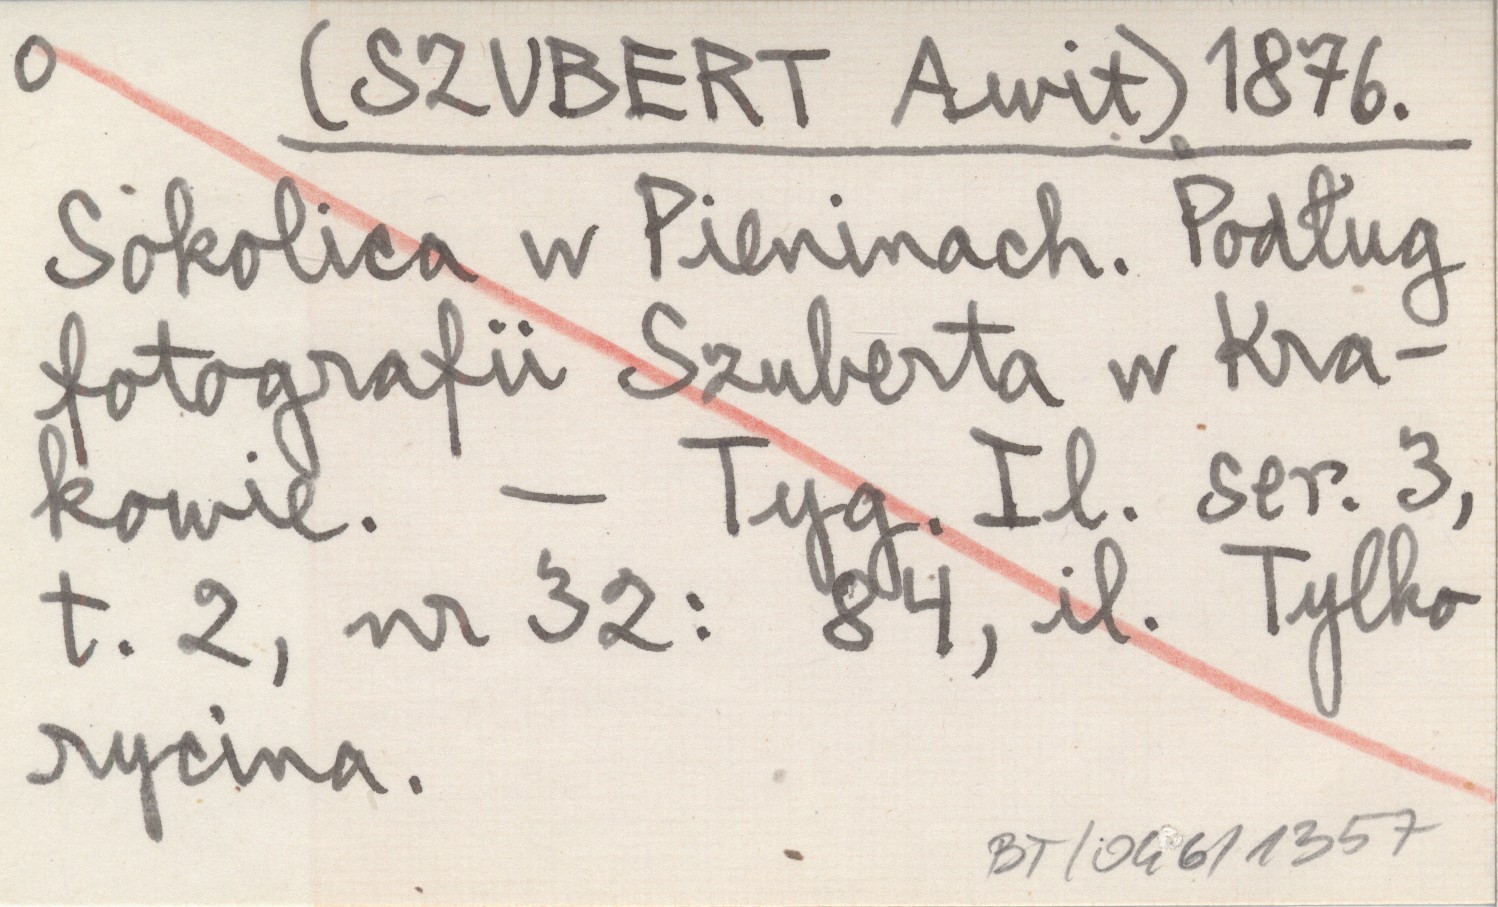 O (SZUBERT Awit) 1876.
Sokolica w Pieninach. Podług
fotografii Szuberta w Kra-
kowie. — Tyg. Il. ser. 3,
t. 2, nr 32: 84, il. Tylko
rycina.
BT/046/1357